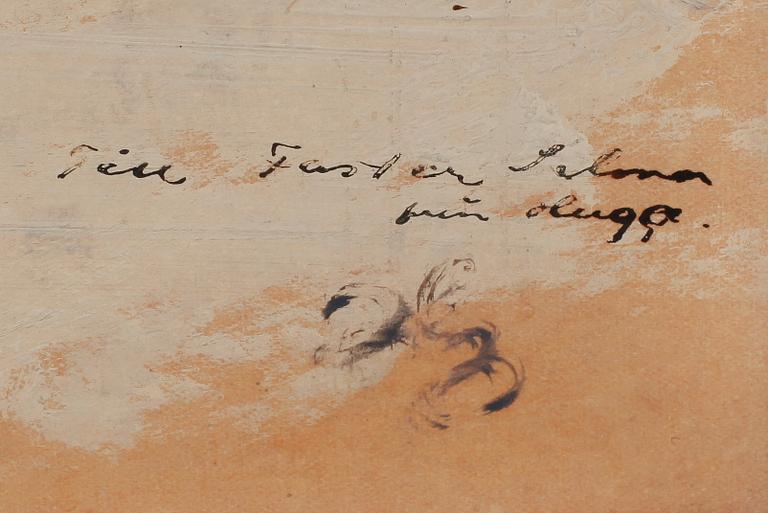 Till Faster Selma
från